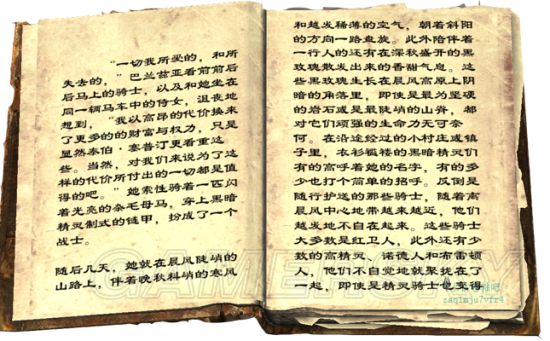 “一切我所爱的，和所
失去的，”巴兰兹亚看前前后
后马上的骑士，以及和她坐在
同一辆马车中的侍女，沮丧地
想到，“我以高昂的代价换来
了更多的的财富与权力，只是
显然泰伯·塞普汀更看重这
些。当然，对我们来说为了这
样的代价所付出的一切都是值
得的吧。”她索性骑着一匹闪
着光亮的杂毛母马，穿上黑暗
精灵制式的链甲，扮成了一个
战士。
随后几天，她就在晨风陡峭的
山路上，伴着晚秋料峭的寒风
和越发稀薄的空气，朝着斜阳
的方向一路盘旋。此外陪伴着
一行人的还有在深秋盛开的黑
玫瑰散发出来的香甜气息。这
些黑玫瑰生长在晨风高原上阴
暗的角落里，即使是最为坚硬
的岩石或是最陡峭的山脊，都
对它们顽强的生命力无可奈
何。在沿途经过的小村庄或镇
子里，衣衫褴褛的黑暗精灵们
有的高呼着她的名字，有的多
少也打个简单的招呼。反倒是
随行护送的那些骑士，随着离
晨风中心地带越来越近，他们
越发地不自在起来。这些骑士
大多数是红卫人，此外还有少
数的高精灵、诺德人和布雷顿
人，他们不自觉地就聚拢在了
一起，即使是精灵骑士也变得
GAMERSKY
zaq1mju7vfr4